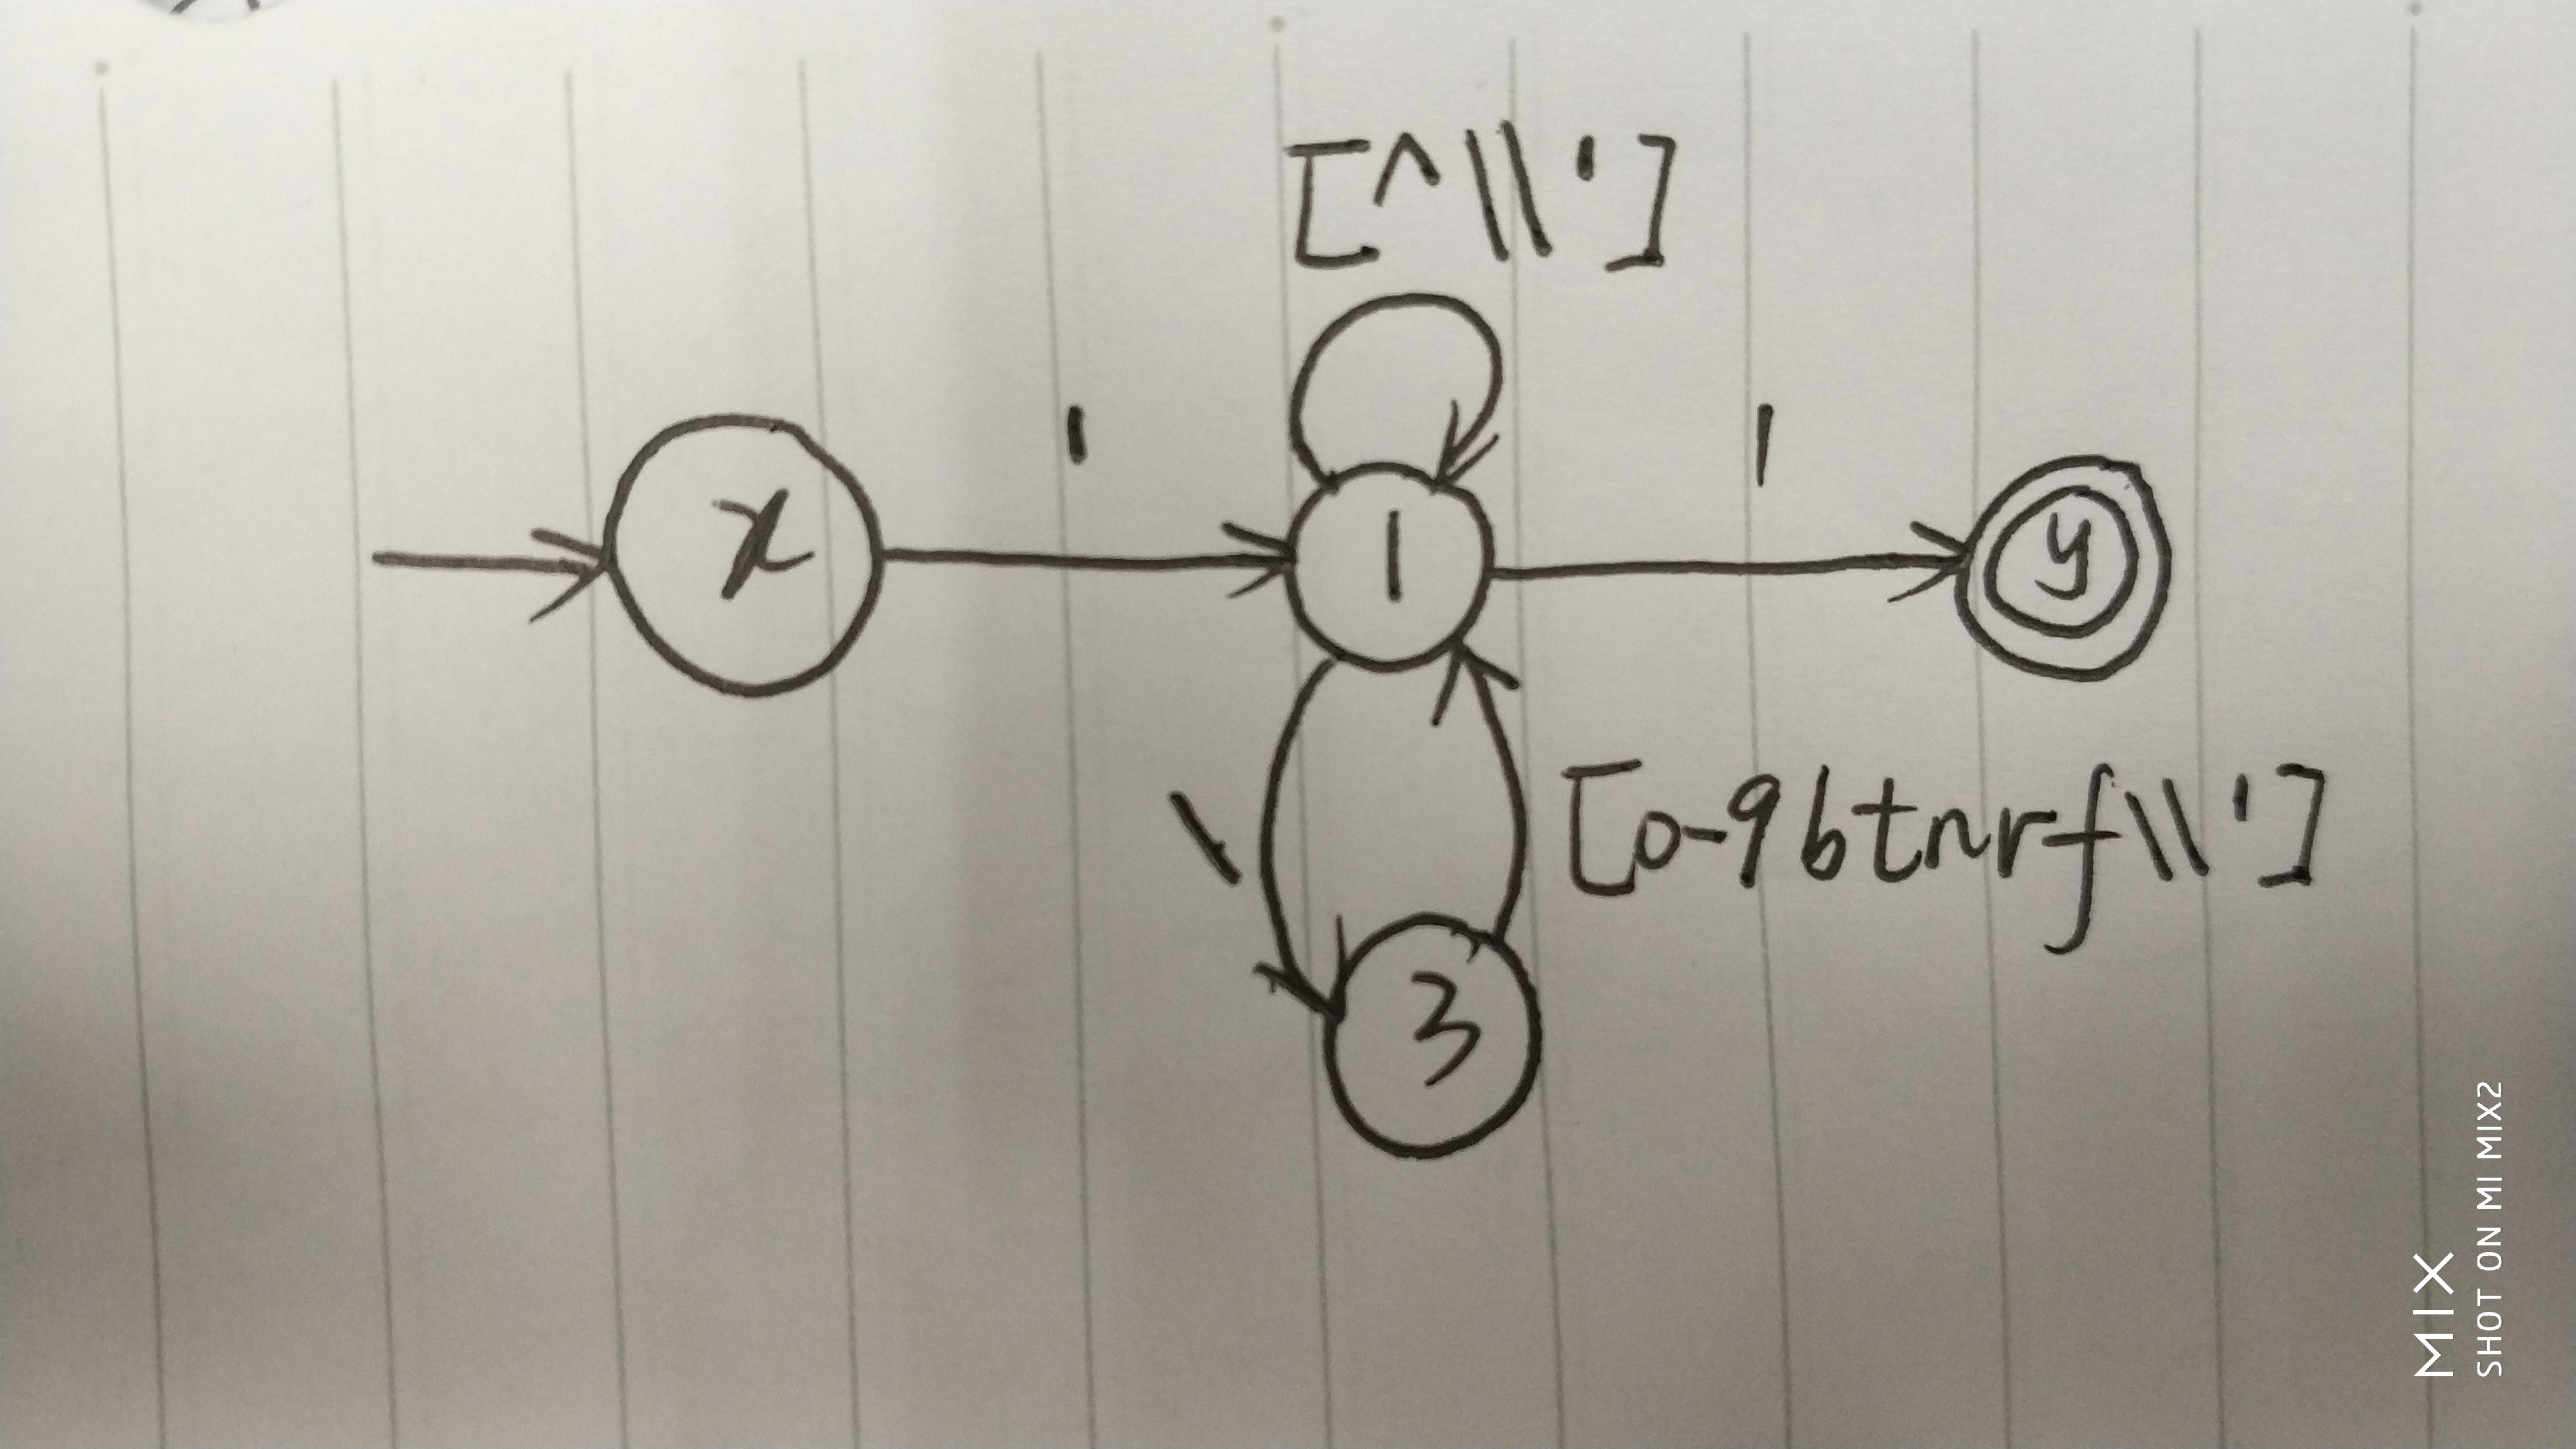 [^\\']
'
'
x
1
y
\
3
[0-9btnrf\\']
MIX
SHOT ON MI MIX2